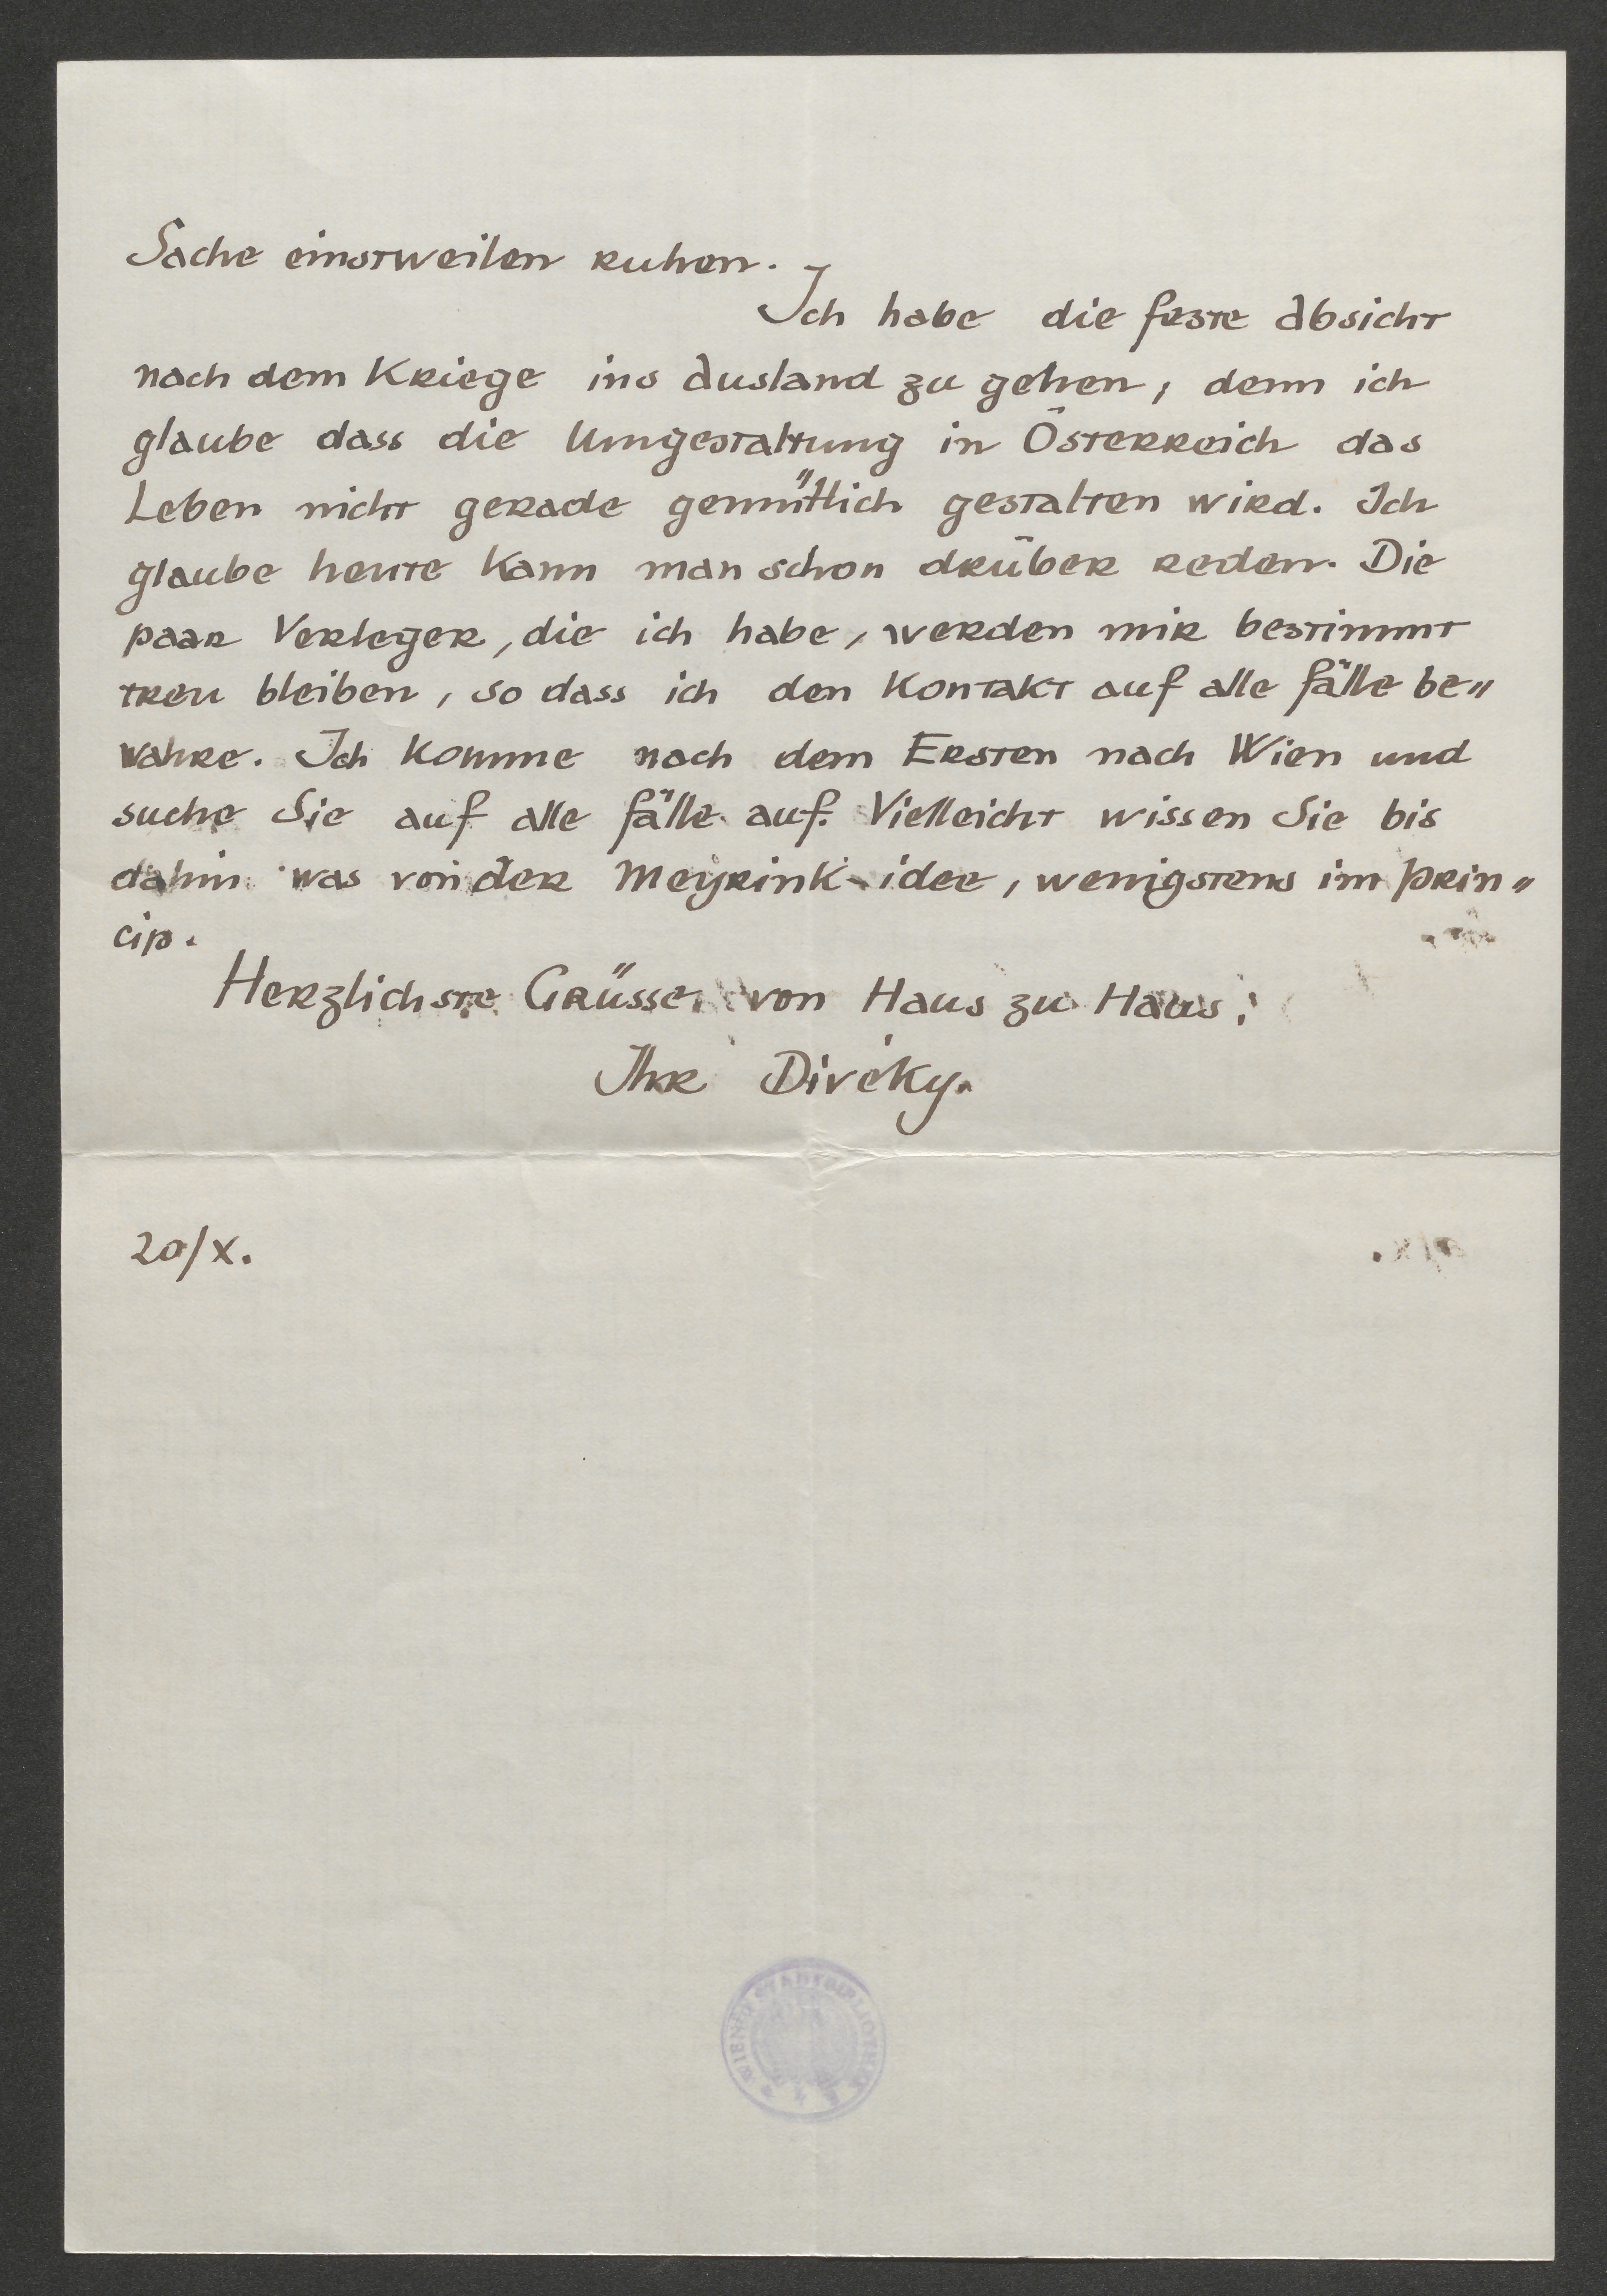 Sache einstweilen ruhen.
Ich habe die feste Absicht
nach dem Kriege ins Ausland zu gehen, denn ich
glaube dass die Umgestaltung in Österreich das
Leben nicht gerade gemütlich gestalten wird. Ich
glaube heute kann man schon drüber reden. Die
paar Verleger, die ich habe, werden mir bestimmt
treu bleiben, so dass ich den Kontakt auf alle fälle be„
wahre. Ich komme nach dem Ersten nach Wien und
suche Sie auf alle fälle auf. Vielleicht wissen Sie bis
dahin was von der Meyrink-idee, wenigstens im prin„
cip.
Herzlichste Grüsse von Haus zu Haus;
Ihr Divéky.
20/X.
WIENER STADTBIBLIOTHEK